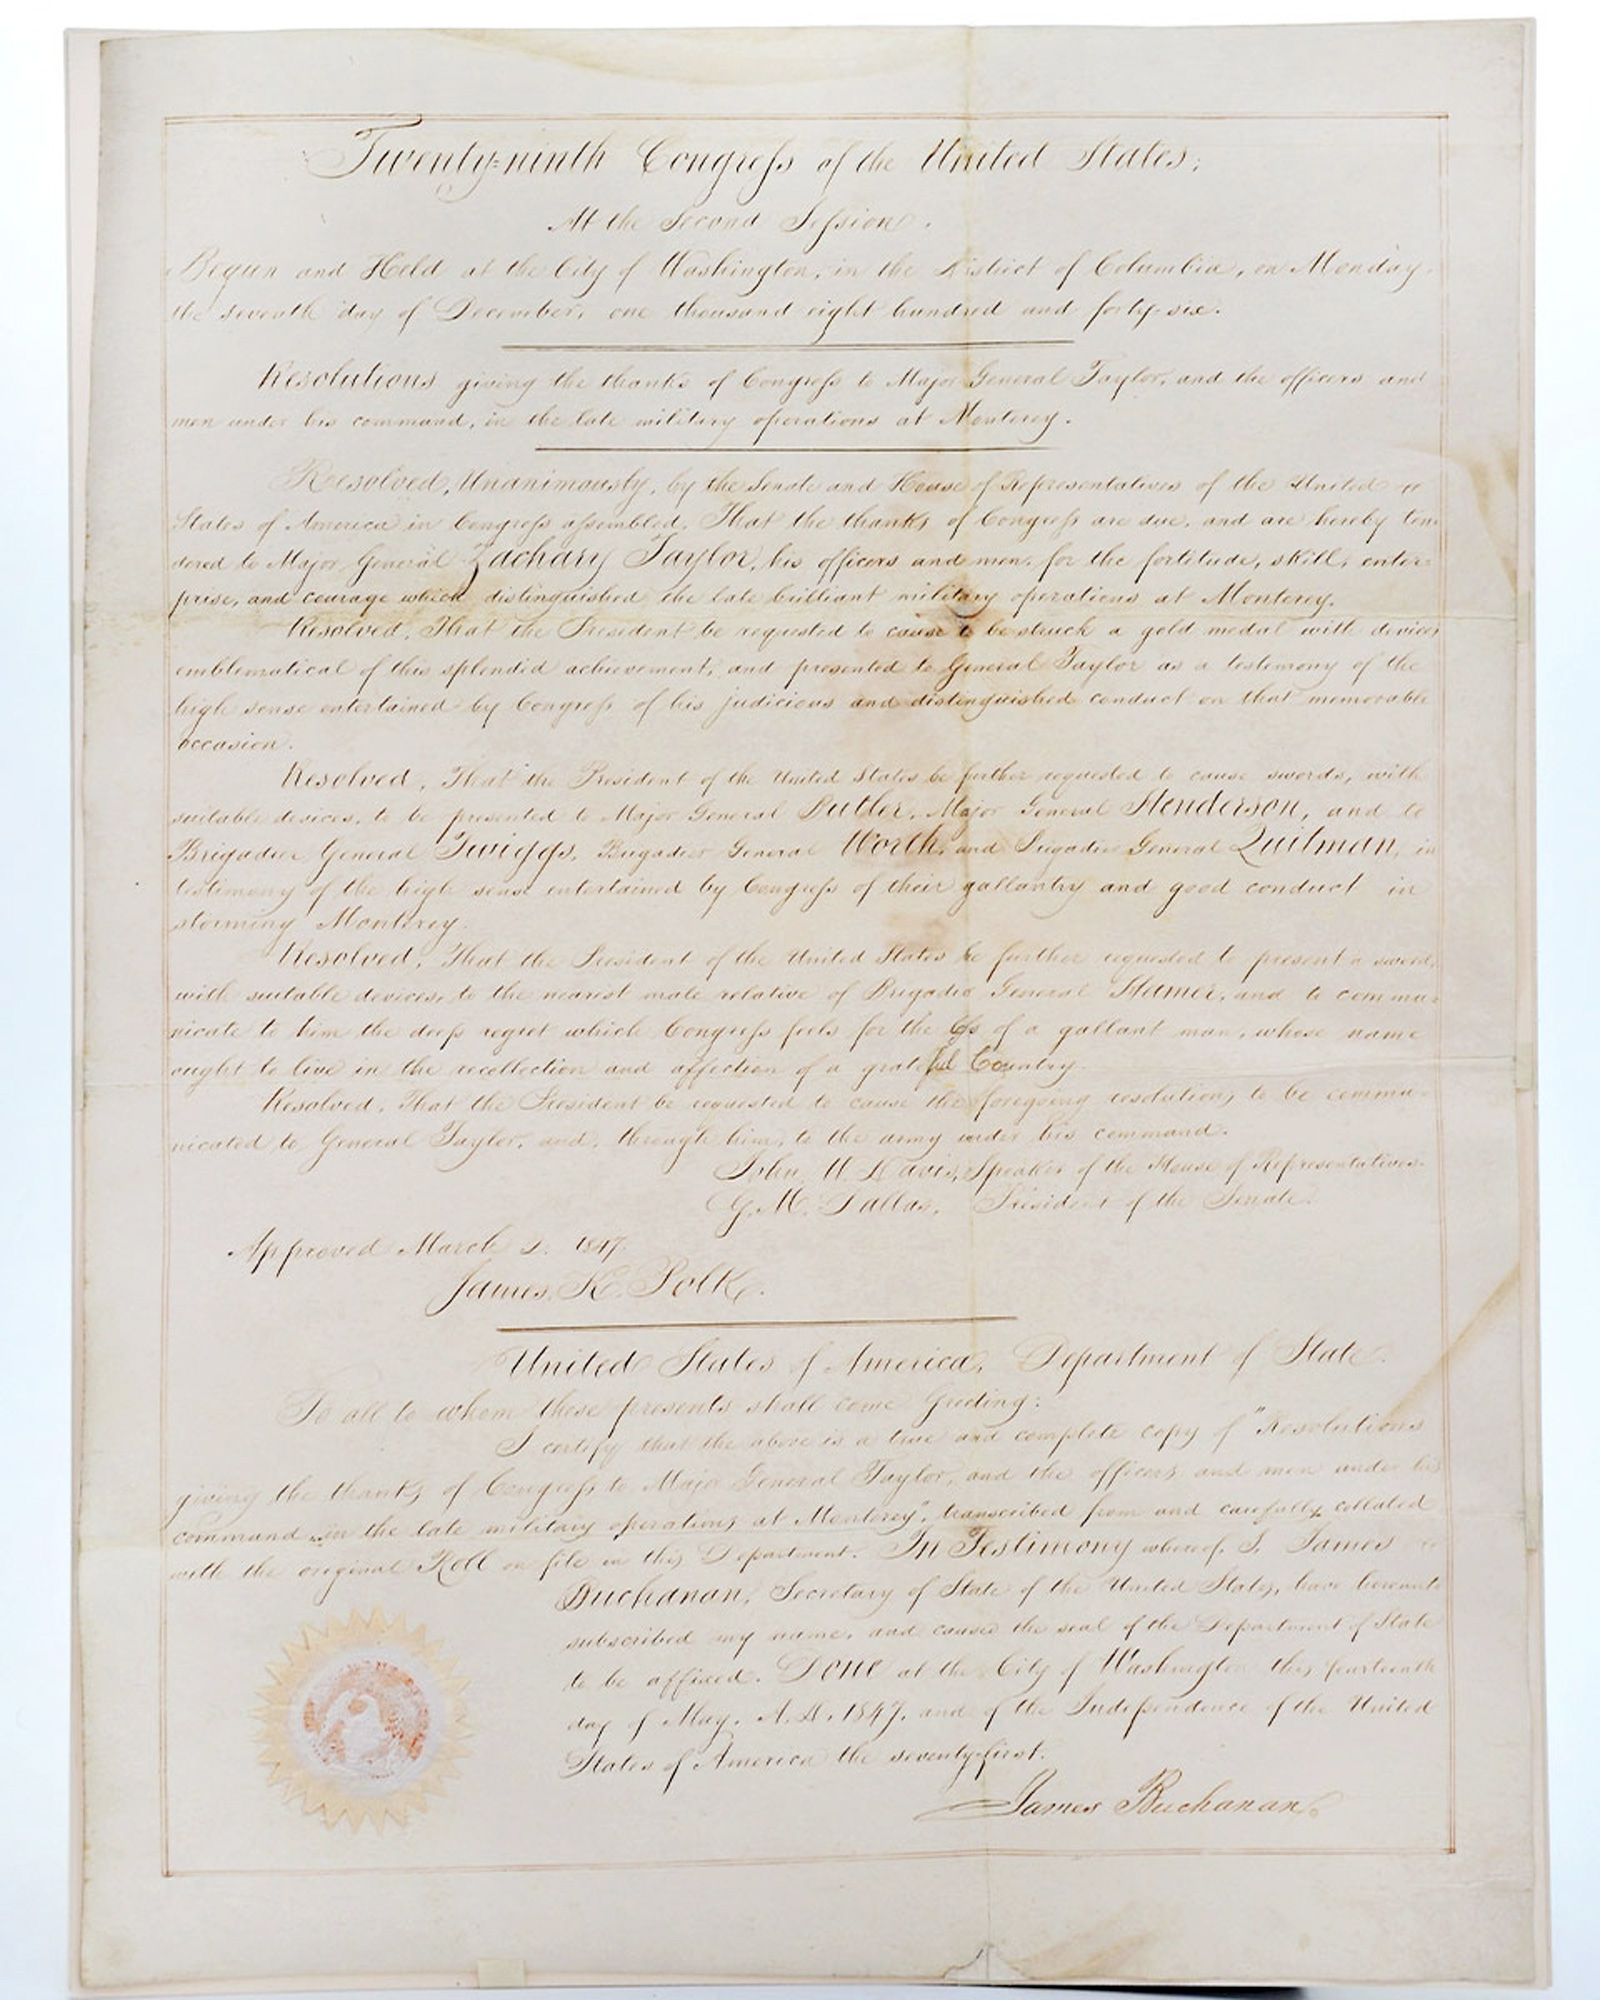 Twenty=ninth Congress of the United States;
At the Second Session.
Begun and Held at the City of Washington, in the District of Columbia, on Monday
the seventh day of December, one thousand eight hundred and forty-six.
Resolutions giving the thanks of Congress to Major General Taylor, and the officers and
men under his command, in the late military operations at Monterey.
Resolved, Unanimously, by the Senate and House of Representatives of the United
States of America in Congress assembled, That the thanks of Congress are due, and are hereby ten-
dered to Major General Zachary Taylor, his officers and men, for the fortitude, skill, enter-
prise, and courage which distinguished the late brilliant military operations at Monterey.
Resolved, That the President be requested to cause to be struck a gold medal with devices
emblematical of this splendid achievement, and presented to General Taylor as a testimony of the
high sense entertained by Congress of his judicious and distinguished conduct on that memorable
occasion.
Resolved, That the President of the United States be further requested to cause swords, with
suitable devices, to be presented to Major General Butler, Major General Henderson, and to
Brigadier General Twiggs, Brigadier General Worth, and Brigadier General Quitman, in
testimony of the high sense entertained by Congress of their gallantry and good conduct in
storming Monterey.
Resolved, That the President of the United States be further requested to present a sword,
with suitable devices, to the nearest male relative of Brigadier General Hamer, and to commu-
nicate to him the deep regret which Congress feels for the loss of a gallant man, whose name
ought to live in the recollection and affection of a grateful Country.
Resolved, That the President be requested to cause the foregoing resolutions to be commu-
nicated to General Taylor, and, through him, to the army under his command.
John W. Davis, Speaker of the House of Representatives.
G. M. Dallas, President of the Senate.
Approved March 2. 1847.
James K. Polk.
United States of America, Department of State.
To all to whom these presents shall come Greeting:
I certify that the above is a true and complete copy of "Resolutions
giving the thanks of Congress to Major General Taylor, and the officers and men under his
command in the late military operations at Monterey", transcribed from and carefully collated
with the original Roll on file in this Department. In Testimony whereof, I, James
Buchanan, Secretary of State of the United States, have hereunto
subscribed my name, and caused the seal of the Department of State
to be affixed. Done at the City of Washington this fourteenth
day of May, A.D. 1847, and of the Independence of the United
States of America the seventy-first.
James Buchanan.